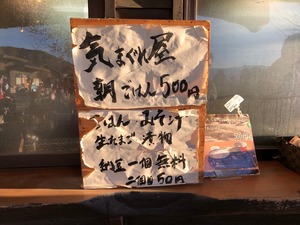 気まぐれ屋
朝ごはん500円
ごはん みそ汁
生たまご 漬物
納豆一個無料
二個目50円